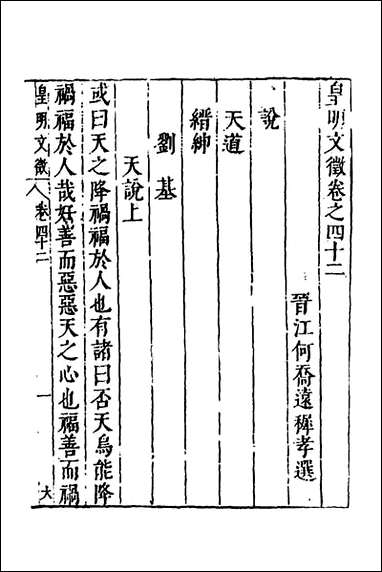 皇明文徵卷之四十二
晉江何喬遠穉孝選
說
天道
縉紳
劉基
天說上
或曰天之降禍福於人也有諸曰否天烏能降
禍福於人哉好善而惡惡天之心也福善而禍
皇明文徵 卷四十二 一 大